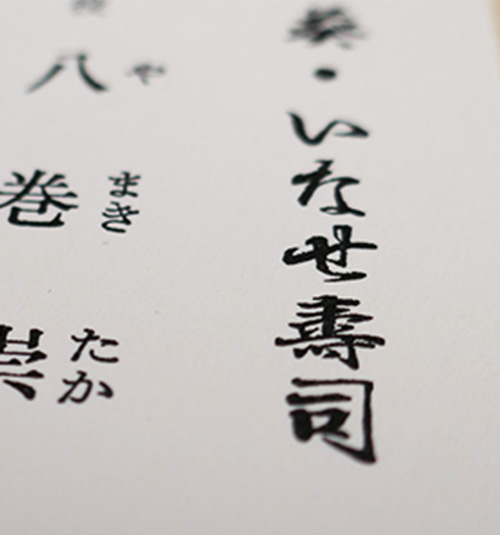 ・いなせ壽司
やまきたか
八巻